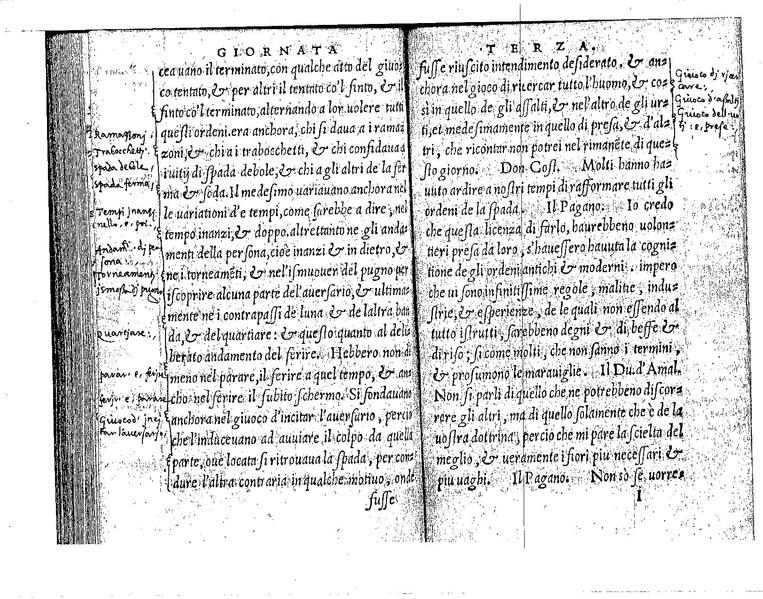 GIORNATA
ceauano il terminato, con qualche atto del giuo-
co tentato, & per altri il tentato co'l finto, & il
finto co'l terminato, alternando a lor uolere tutti
questi ordeni. era anchora, chi si daua a i ramaz
zoni, & chi a i trabocchetti, & chi confidaua
i uitij di spada debole, & chi a gli altri de la fer
ma & soda. Il medesimo uariauano anchora nel
le uariationi d'e tempi, come sarebbe a dire, nel
tempo inanzi, & doppo. altrettanto ne gli anda-
menti della persona, cioè inanzi & in dietro, &
ne i torneamẽti, & nel'ismuouer del pugno per
iscoprire alcuna parte del'auersario, & ultima-
mente ne i contrapassi de luna & de laltra ban
da, & del quartiare: & questo quanto al deli-
berato andamento del ferire. Hebbero non di
meno nel parare, il ferire a quel tempo, & an-
cho nel ferire il subito schermo. Si fondauano
anchora nel giuoco d'incitar l'auersario, percio
che l'induceuano ad auuiare il colpo da quella
parte, oue locata si ritrouaua la spada, per con-
durre l'altra contraria in qualche motiuo, onde
fusse
Ramazzoni.
Trabocchetti.
spada debile,
spada ferma,
Tempi inanzi
nello, e, poi.
Andamẽ. dj per
sona
torneamenti
quartiare:
parar. e, ferire
ferir. e, parare
Giuoco d'inci
tar l'auersario
TERZA.
fusse riuscito intendimento desiderato. & an-
chora nel gioco di ricercar tutto l'huomo, & co-
si in quello de gli assalti, & nel'altro de gli ur-
ti, et medesimamente in quello di presa, & d'al-
tri, che ricontar non potrei nel rimanẽte di que-
sto giorno. Don Cost. Molti hanno ha-
uuto ardire a nostri tempi di rafformare tutti gli
ordeni de la spada. Il Pagano. Io credo
che questa licenza di farlo, haurebbeno uolon-
tieri presa da loro, s'hauessero hauuta la cogni-
tione de gli ordeni antichi & moderni. impero
che ui sono infinitissime regole, malitie, indu-
strie, & esperienze, de le quali non essendo al
tutto istrutti, sarebbeno degni & di beffe &
di riso; si come molti, che non sanno i termini,
& prosumono le marauiglie. Il Du. d'Amal.
Non si parli di quello che ne potrebbeno discor-
rere gli altri, ma di quello solamente che è de la
uostra dottrina, percio che mi pare la scielta del
meglio, & ueramente i fiori piu necessari &
piu uaghi. Il Pagano. Non so se uorre-
I
Giuoco di ricer
care,
Giuoco d'assalti
Giuoco dell'ur
ti: e, prese: